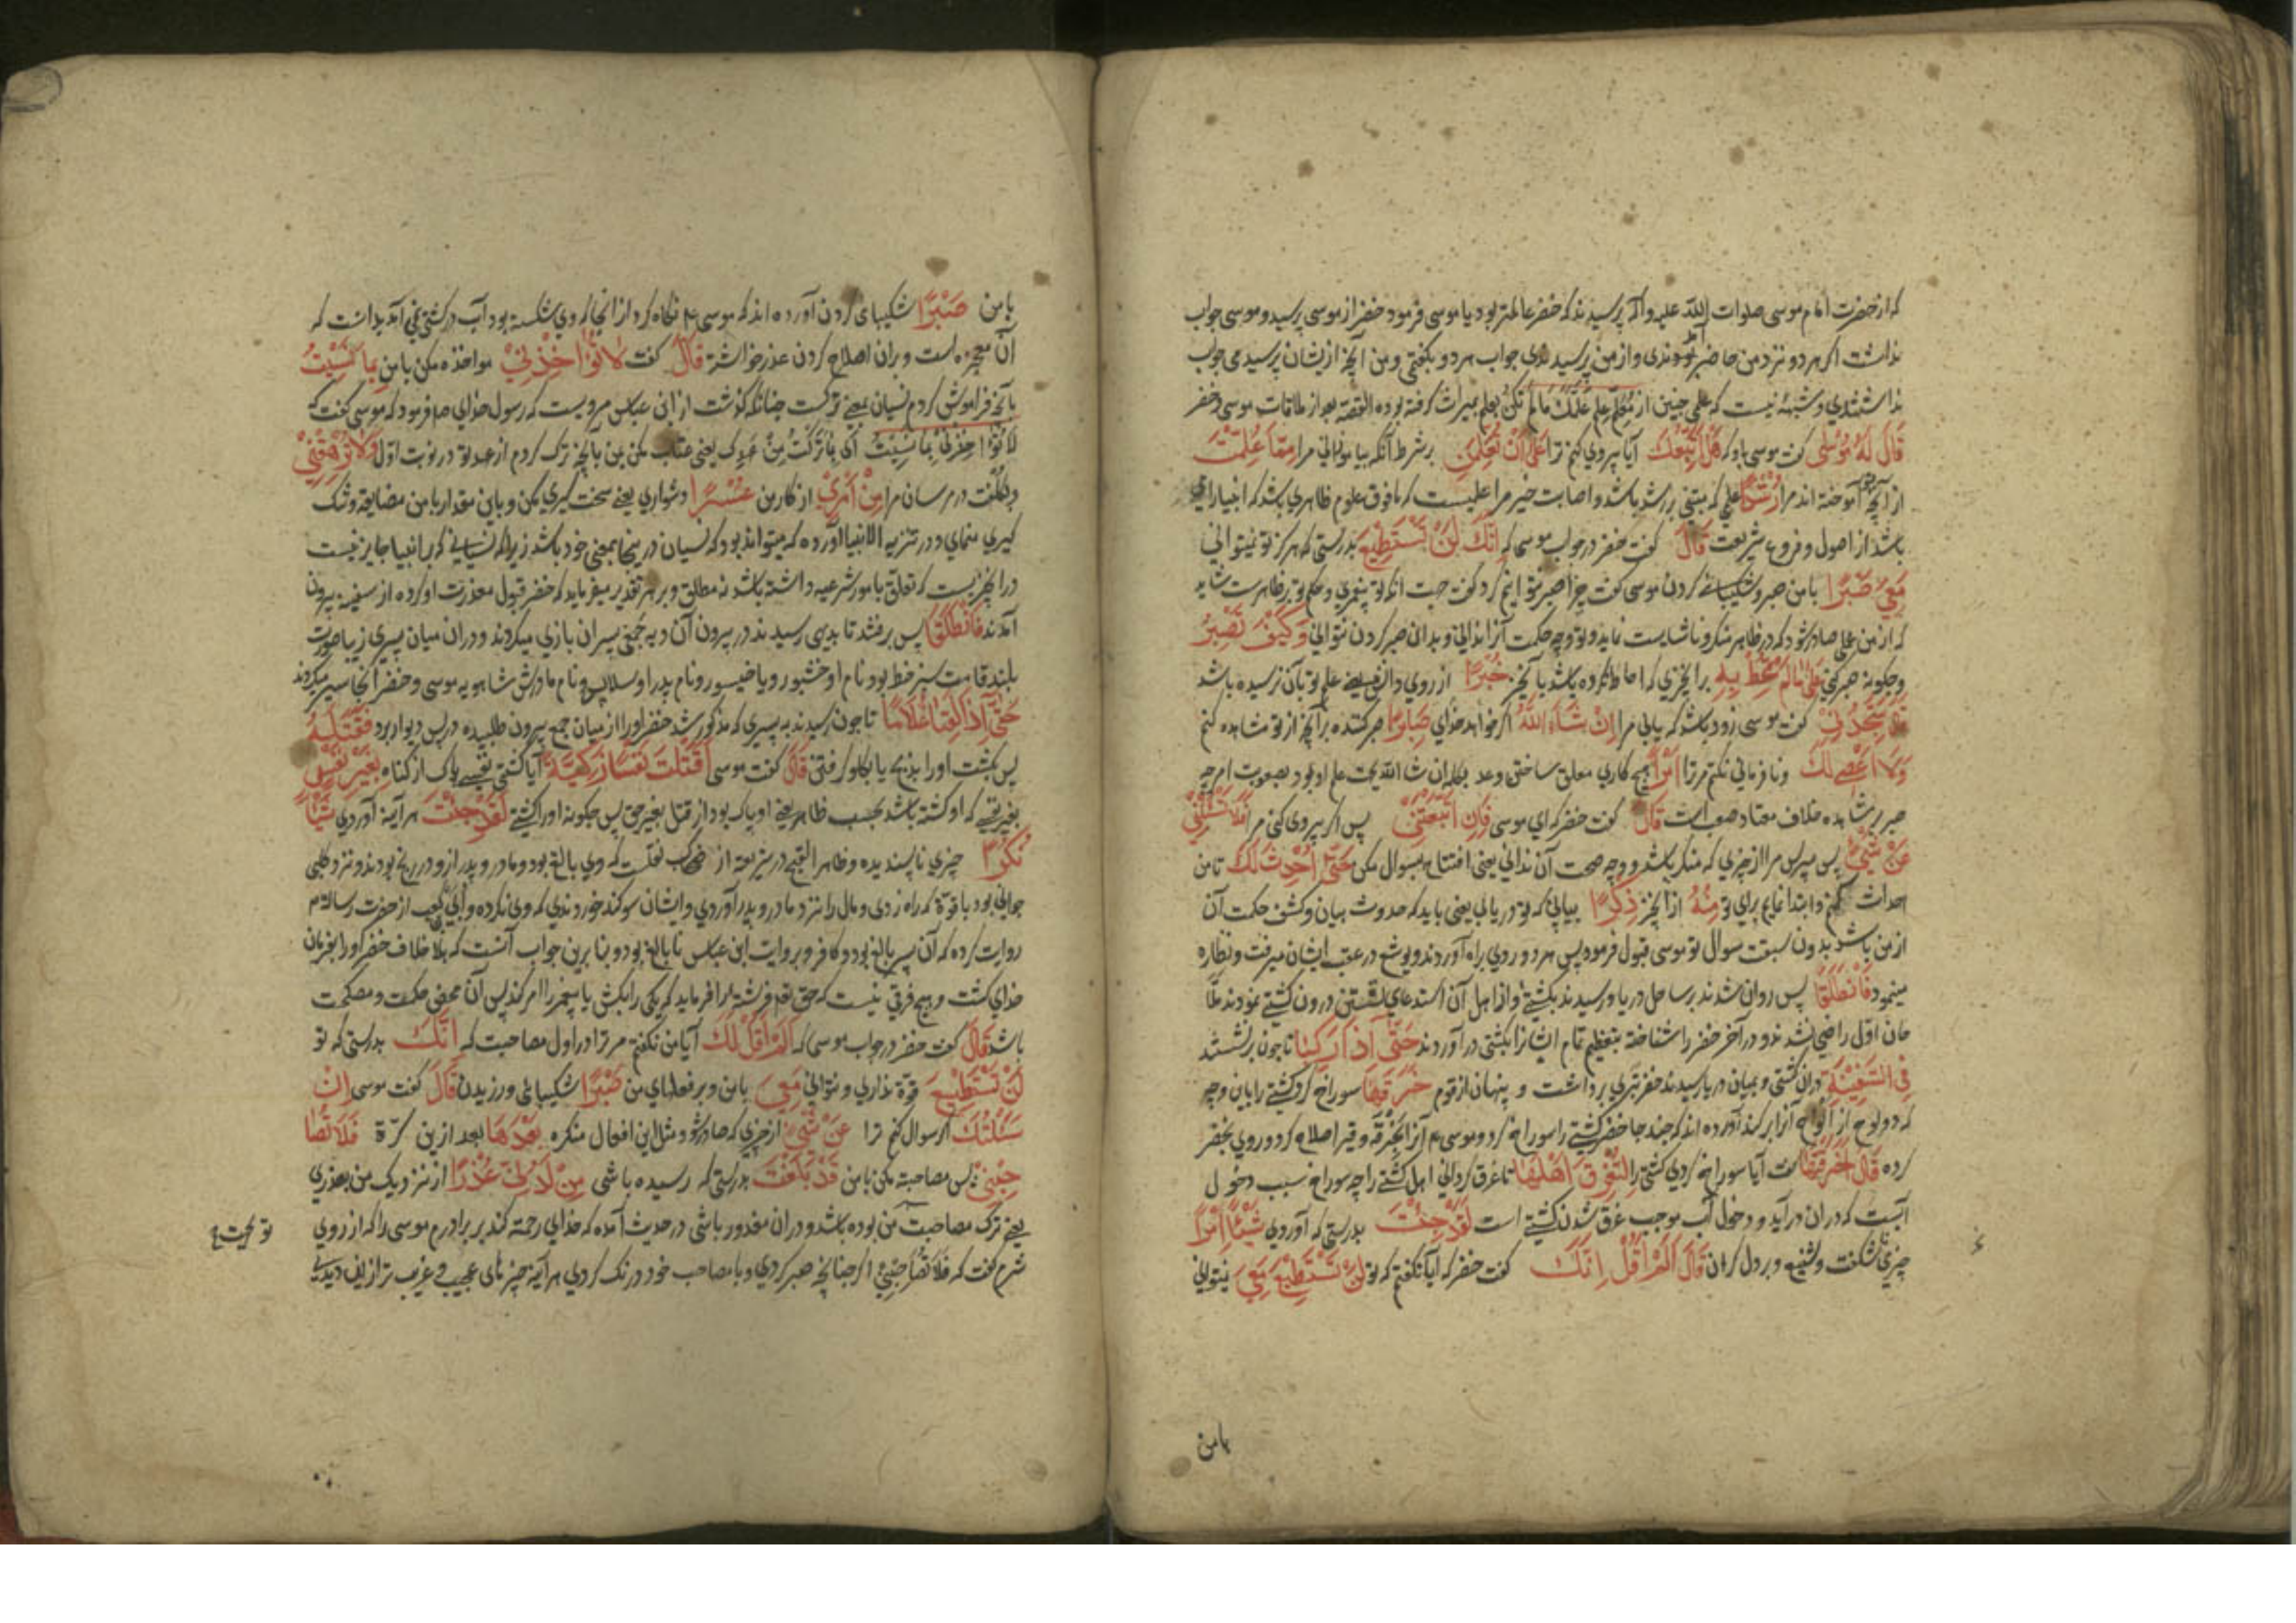 که از حضرت امام موسی صلوات الله علیه و آله پرسیدند که خضر عالمتر بود یا موسی فرمود خضر از موسی پرسید و موسی جواب
نداشت اگر هر دو نزد من حاضر بودندی و از من پرسیدندی جواب هر دو بگفتمی و من آنچه از یشان پرسیدمی جواب
نداشتندی و شبهه نیست که علمی چنین از معلم علم علمک ما لم تکن تعلم بمیراث گرفته بوده القصه بعد از ملاقات موسی و خضر
قَالَ لَهُ مُوسٰی گفت موسی باو که هَلْ اَتَّبِعُکَ آیا پیروی کنم ترا عَلٰی اَنْ تُعَلِّمَنِ برشرط آنکه بیاموزانی مرا مِمَّا عُلِّمْتَ
از آنچه آموخته اند مرا رُشْدًا علمی که مبتنی بر رشد باشد و اصابت خیر مرا علمیست که مافوق علوم ظاهری باشد که انبیا را
باشد از اصول و فروع شریعت قَالَ گفت خضر در جواب موسی که اِنَّکَ لَنْ تَسْتَطِیْعَ بدرستی که هرگز تو نیتوانی
مَعِیَ صَبْرًا با من صبر و شکیبائی کردن موسی گفت چرا صبر نتوانم کرد گفت جهت انکه تو پیغمبری و حکم تو بر ظاهرست شاید
که از من عملی صادر شود که در ظاهر منکر و ناشایست نماید و تو وجه حکمت آنرا ندانی و بدانی صبر کردن نتوانی وَکَیْفَ تَصْبِرُ
و چکونه صبر کنی عَلٰی مَا لَمْ تُحِطْ بِهِ برانچیزی که احاطه نکرده باشد یا آنچیز خُبْرًا از روی دانش یعنی علم تو بآن نرسیده باشد
قَالَ سَتَجِدُنِیْ گفت موسی زود باشد که یابی مرا اِنْ شَآءَ اللّٰهُ اگر خواهد خدای صَابِرًا صبر کننده بر آنچه از تو مشاهده کنم
وَلَا اَعْصِیْ لَکَ و نافرمانی نکنم مر ترا اَمْرًا هیچ کاری معلق ساختن وعد بکلمه ان شا الله بجهت علم او بود بصعوبت امر چه
صبر بر مشاهده خلاف معتاد صعب است قَالَ گفت خضر که ای موسی فَاِنِ اتَّبَعْتَنِیْ پس اگر پیروی کنی مرا فَلَا تَسْئَلْنِیْ
عَنْ شَیْءٍ پس مپرس مرا از چیزی که منکر باشد و وجه صحت آن ندانی یعنی افتتاح بسوال مکن حَتّٰی اُحْدِثَ لَکَ تا من
احداث کنم و ابتدا نمایم برای تو مِنْهُ از انچیز ذِکْرًا بیانی که تو دریابی یعنی باید که حدوث بیان و کشف حکمت آن
از من باشد بدون سبقت سوال تو موسی قبول فرمود پس هر دو روی براه آوردند و یوشع در عقب ایشان میرفت و نظاره
مینمود فَانْطَلَقَا پس روان شدند بر ساحل دریا و رسیدند بکشتی و از اهل آن استدعای نشستن درون کشتی نمودند ملا
حان اوّل راضی نشدند و در آخر خضر را شناخته بتعظیم تمام ایشانرا بکشتی در آوردند حَتّٰی اِذَا رَکِبَا تا چون برنشستند
فِی السَّفِیْنَةِ دران کشتی و بمیان دریا رسیدند خضر تبری برداشت و پنهان از قوم خَرَقَهَا سوراخ کرد کشتی را باین وجه
که دو لوح از الواح آنرا برکند آورده اند که چند جا خضر کشتی را سوراخ کرد و موسی ع م آنرا بخرقه و قیر اصلاح کرد و روی بخضر
کرده قَالَ اَخَرَقْتَهَا گفت آیا سوراخ کردی کشتی را لِتُغْرِقَ اَهْلَهَا تا غرق کردانی اهل کشتی را چه سوراخ سبب دخول
آبست که دران درآید و دخول آب موجب غرق شدن کشتی است لَقَدْ جِئْتَ بدرستی که آوردی شَیْئًا اِمْرًا
چیزی شکفت و شنیع و بر دل کران قَالَ اَلَمْ اَقُلْ اِنَّکَ گفت خضر که آیا نکفتم که تو لَنْ تَسْتَطِیْعَ مَعِیَ نیتوانی
با من
با من صَبْرًا شکیبای کردن آورده اند که موسی ع م نگاه کرد از انجا که وی شکسته بود آب در کشتی نمی آمد بدانست که
آن معجزه است و بران اصلاح کردن عذر خواست قَالَ گفت لَا تُؤَاخِذْنِیْ مواخذه مکن با من بِمَا نَسِیْتُ
بآنچه فراموش کردم نسیان بمعنی ترکست چنانکه گذشت از ابن عباس مرویست که رسول خدای ص فرمود که موسی گفت که
لا تُؤاخِذْنی بِما نَسِیتُ ای بِما تَرَکتُ مِن عَهدِک یعنی عتاب مکن بمن بآنچه ترک کردم از عهد تو در نوبت اوّل وَلَا تُرْهِقْنِیْ
و تکلّفت در مرسان مرا مِنْ اَمْرِیْ از کار من عُسْرًا دشواری یعنی سخت گیری مکن و باین مقدار با من مضایقه و تنک
گیری منمای و در تنزیه الانبیا آورده که میتواند بود که نسیان در اینجا بمعنی خود باشد زیرا که نسیانی که بر انبیا جایز نیست
در انچیزیست که تعلق بامور شرعیه داشته باشد نه مطلق و بر هر تقدیر میفرماید که خضر قبول معذرت او کرده از سفینه بیرون
آمدند فَانْطَلَقَا پس برفتند تا بدیهی رسیدند در بیرون آن دیه جمعی پسران بازی میکردند و دران میان پسری زیبا صورت
بلند قامت سبز خط بود نام او خشبور و یا خیسور و نام پدر او سلاس و نام مادرش شاهویه موسی و خضر آنجا سیر میکردند
حَتّٰی اِذَا لَقِیَا غُلَامًا تا چون رسیدند به پسری که مذکور شد خضر او را از میان جمع بیرون طلبیده در پس دیوار برد فَقَتَلَهُ
پس بکشت او را بذبح یا بکلو گرفتن قَالَ گفت موسی اَقَتَلْتَ نَفْسًا زَکِیَّةً آیا کشتی نفسی پاک از گناه بِغَیْرِ نَفْسٍ
بغیر نفسی که او کشته باشد بحسب ظاهر یعنی او پاک بود از قتل بغیر حق پس چکونه او را کشتی لَقَدْ جِئْتَ هر آینه آوردی شَیْئًا
نُکْرًا چیزی ناپسندیده و ظاهر القبح در شریعت از ضحاک نقلست که وی بالغ بود و مادر و پدر ازو در رنج بودند و نزد کلبی
جوانی بود با قوّة که راه زدی و مال را نزد مادر و پدر آوردی و ایشان سوگند خوردندی که وی نکرده و ابی کعب از حضرت رسالت م
روایت کرده که آن پسر بالغ بود و کافر و بروایت ابن عباس نابالغ بود و بنا برین جواب آنست که بلا خلاف خضر او را بفرمان
خدای کشت و هیچ فرقی نیست که حق تعالی فرشته را فرماید که یکی را بکش یا پیغمبر را امر کند پس آن محض حکمت و مصلحت
باشد قَالَ گفت خضر در جواب موسی که اَلَمْ اَقُلْ لَکَ آیا من نکفتم مر ترا در اول مصاحبت که اِنَّکَ بدرستی که تو
لَنْ تَسْتَطِیْعَ قوّة نداری و نتوانی مَعِیَ با من و بر فعلهای من صَبْرًا شکیبائی ورزیدن قَالَ گفت موسی اِنْ
سَئَلْتُکَ اگر سوال کنم ترا عَنْ شَیْءٍ از چیزی که صادر شود مثل این افعال منکره بَعْدَهَا بعد ازین کرّة فَلَا تُصَا
حِبْنِیْ پس مصاحبة مکن با من قَدْ بَلَغْتَ بدرستی که رسیده باشی مِنْ لَدُنِّیْ عُذْرًا از نزدیک من بعذری
یعنی ترک مصاحبت من بوده باشد و دران معذور باشی در حدیث آمده که خدای رحمة کند بر برادرم موسی را که از روی
شرم گفت که فَلَا تُصَاحِبْنِیْ اگر چنانچه صبر کردی و با مصاحب خود درنگ کردی هر آینه چیزهای عجیب و غریب تر از این دیدی